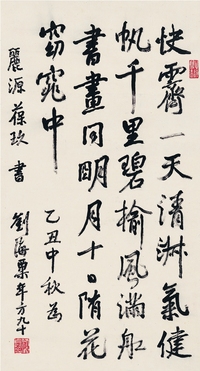 快霽一天清淑氣健
帆千里碧榆風滿舡
書畫同明月十日随花
窈窕中
乙丑中秋為
麗源葆玖書
劉海粟年方九十